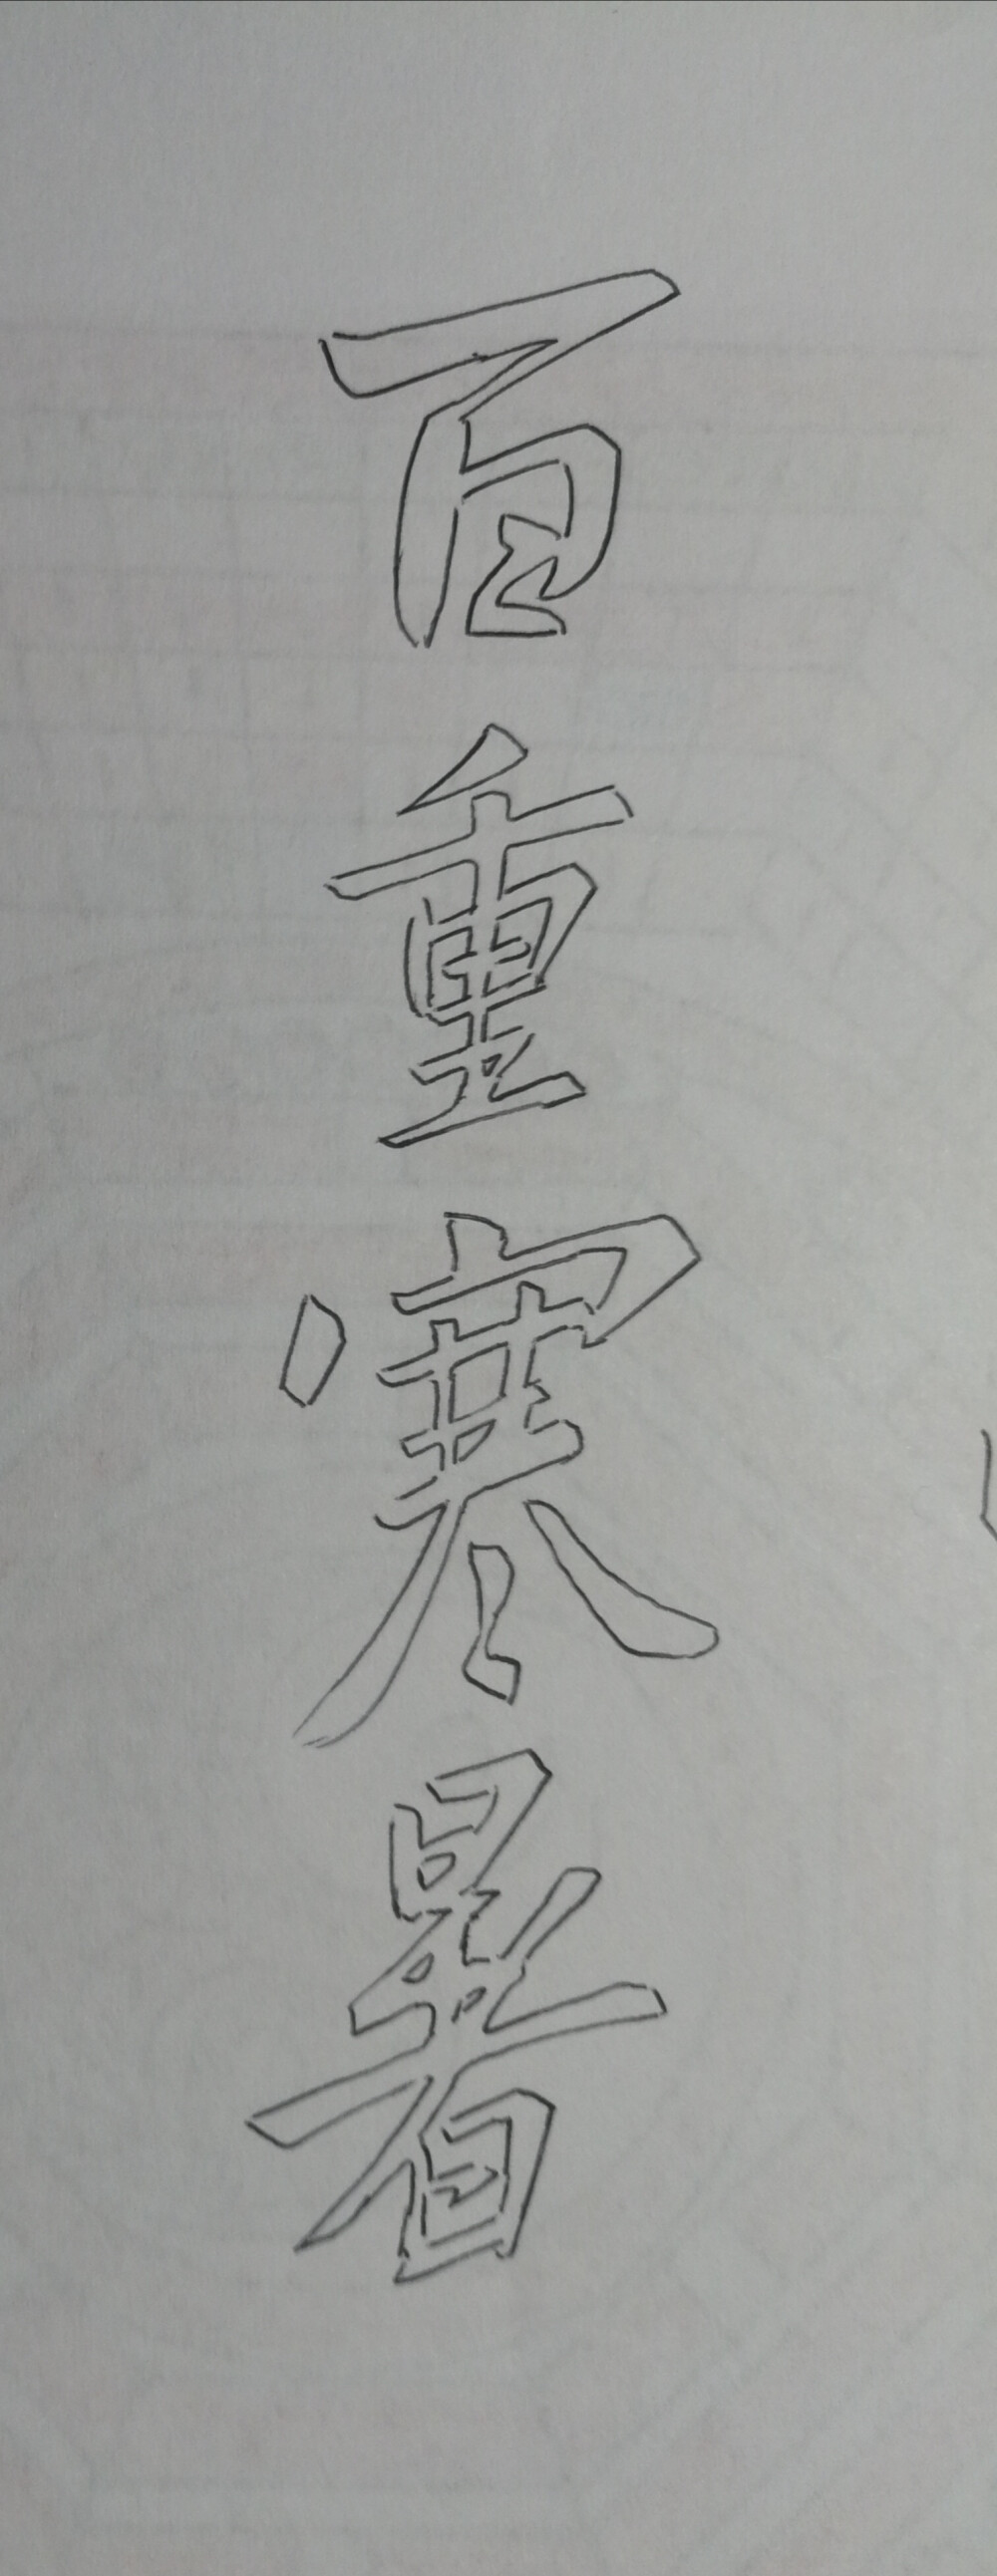 百重寒暑